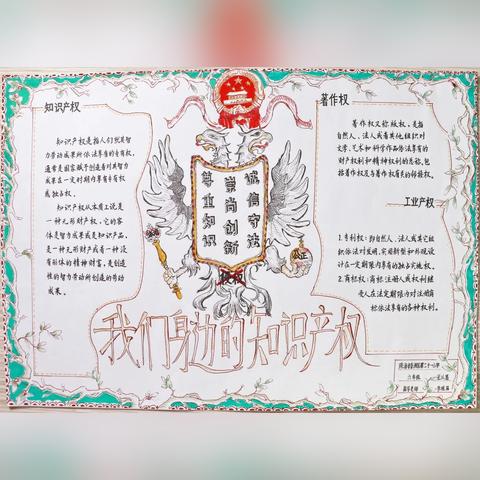 知识产权
知识产权是指人们就其智
力劳动成果所依法享有的专有权,
通常是国家赋予创造者对其智力
成果在一定时期内享有专有权
或独占权。
知识产权从本质上说是
一种无形财产权,它的客
体是智力成果或是知识产品,
是一种无形财产或者一种没
有形体的精神财富,是创造
性的智力劳动所创造的劳动
成果。
尊重知识
崇尚创新
诚信守法
公正
著作权
著作权又称版权。是指
自然人、法人或者其他组织对
文学、艺术和科学作品依法享有的
财产权利和精神权利的总称,包
括著作权及与著作权有关的邻接权。
工业产权
1.专利权:即自然人、法人或其它组
织依法对发明、实用新型和外观设
计在一定期限内享有的独占实施权。
2.商标权:商标注册人或权利继
受人在法定期限内对注册商
标依法享有的各种权利。
我们身边的知识产权
六年级
指导老师